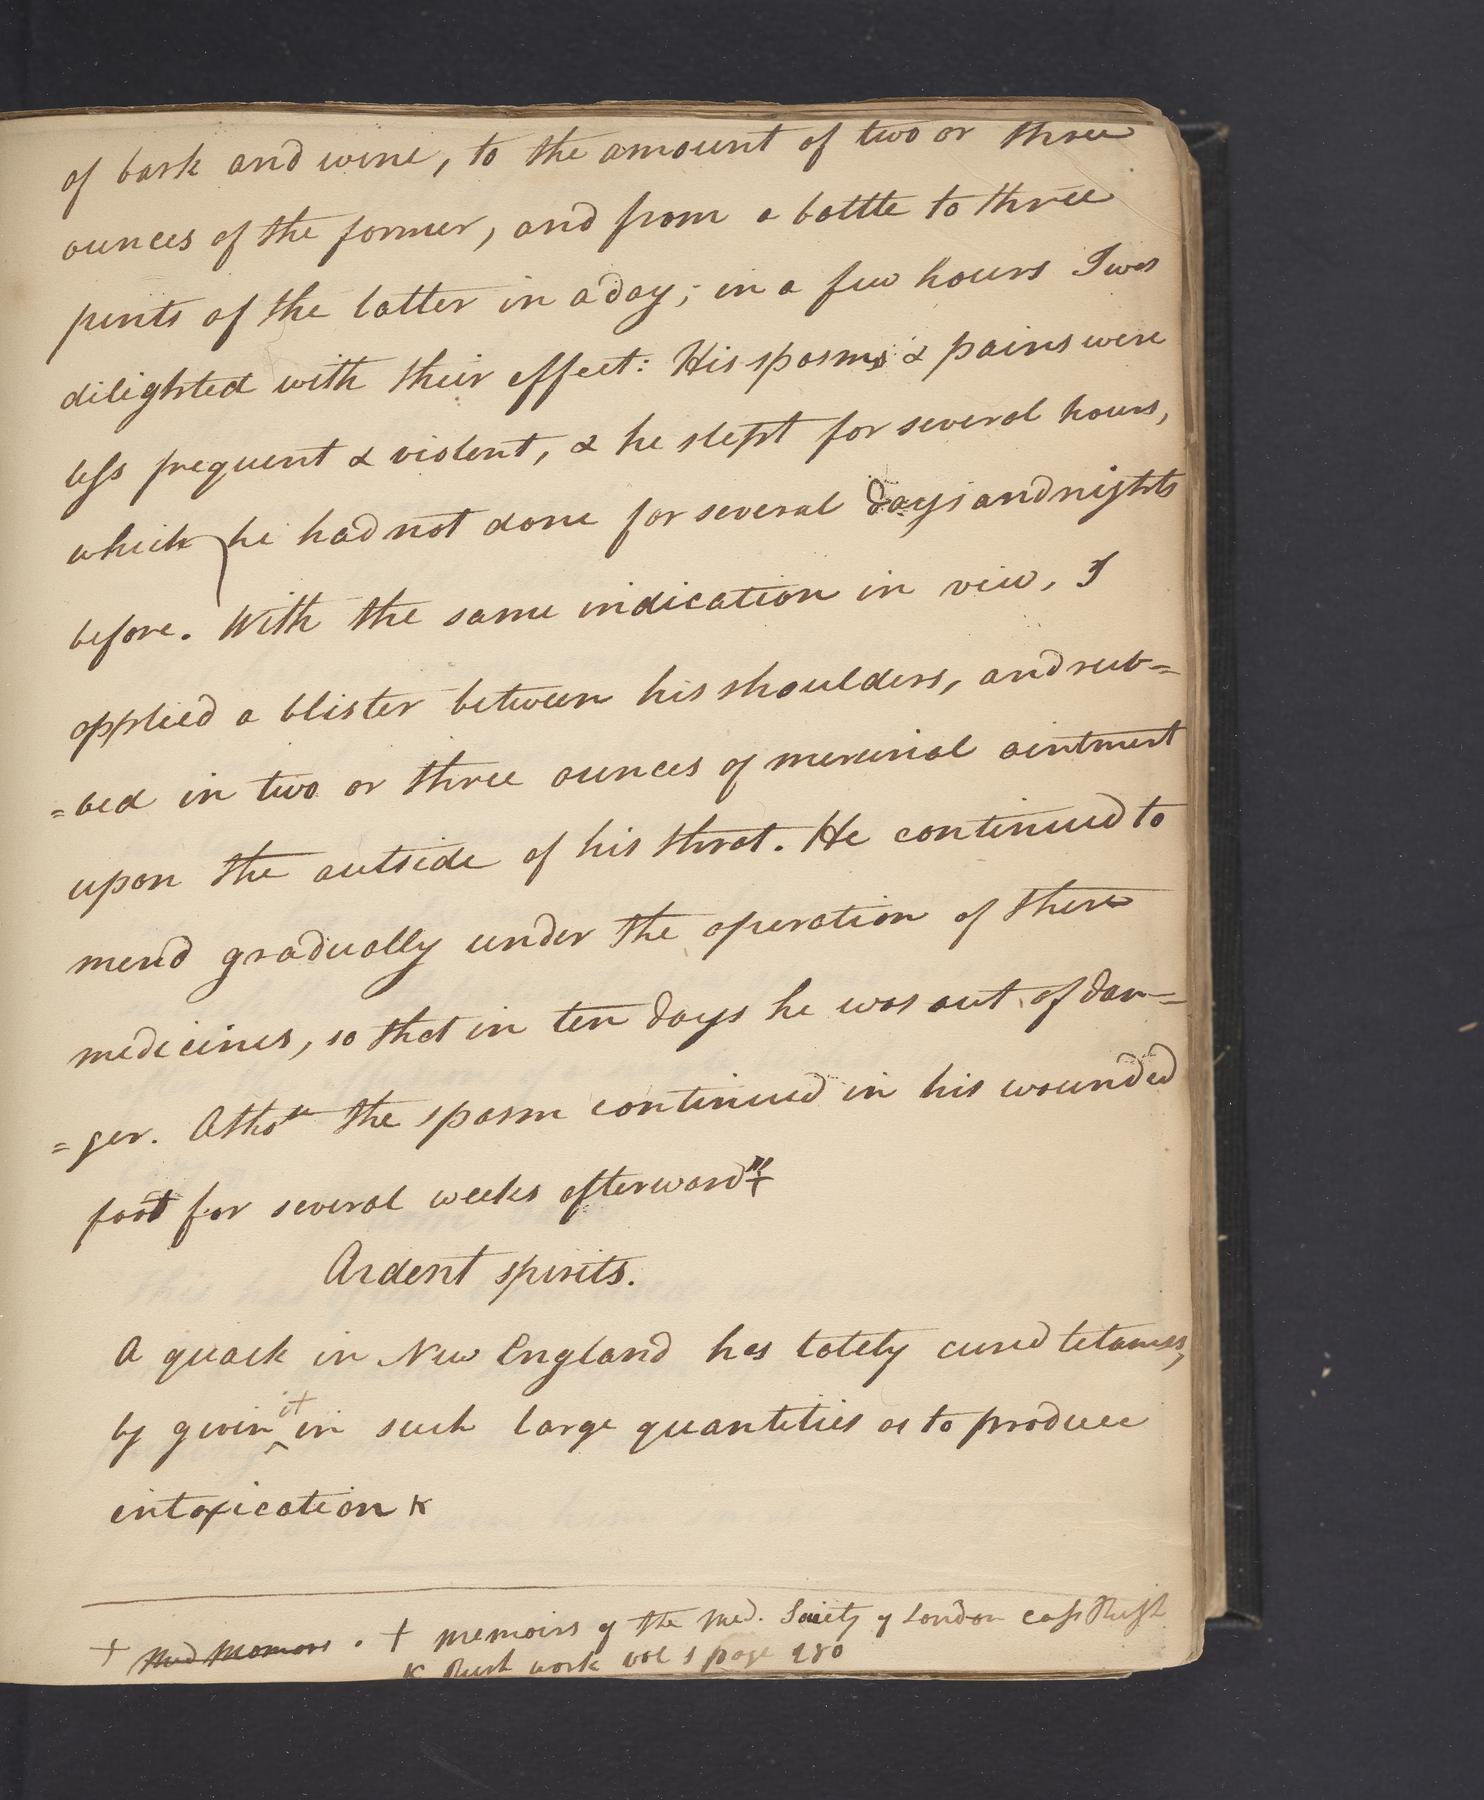 of bark and wine, to the amount of two or three
ounces of the former, and from a bottle to three
pints of the latter in a day; in a few hours I was
dilighted with their effect: His spasms & pains were
less frequent & violent, & he slept for several hours,
which he had not done for several days and nights
before. With the same indication in view, I
applied a blister between his shoulders, and rub=
=bed in two or three ounces of mercurial ointment
upon the outside of his throt. He continued to
mend gradually under the operation of these
medicines, so that in ten days he was out of dan=
=ger. Altho the spasm continued in his wounded
foot for several weeks afterward"+
Ardent spirits.
A quack in New England has lately cured tetanus,
by givin it in such large quantities as to produce
intoxication K
+ Med Memoirs . + memoirs of the Med. Society of London
K Rush work vol 1 page 280